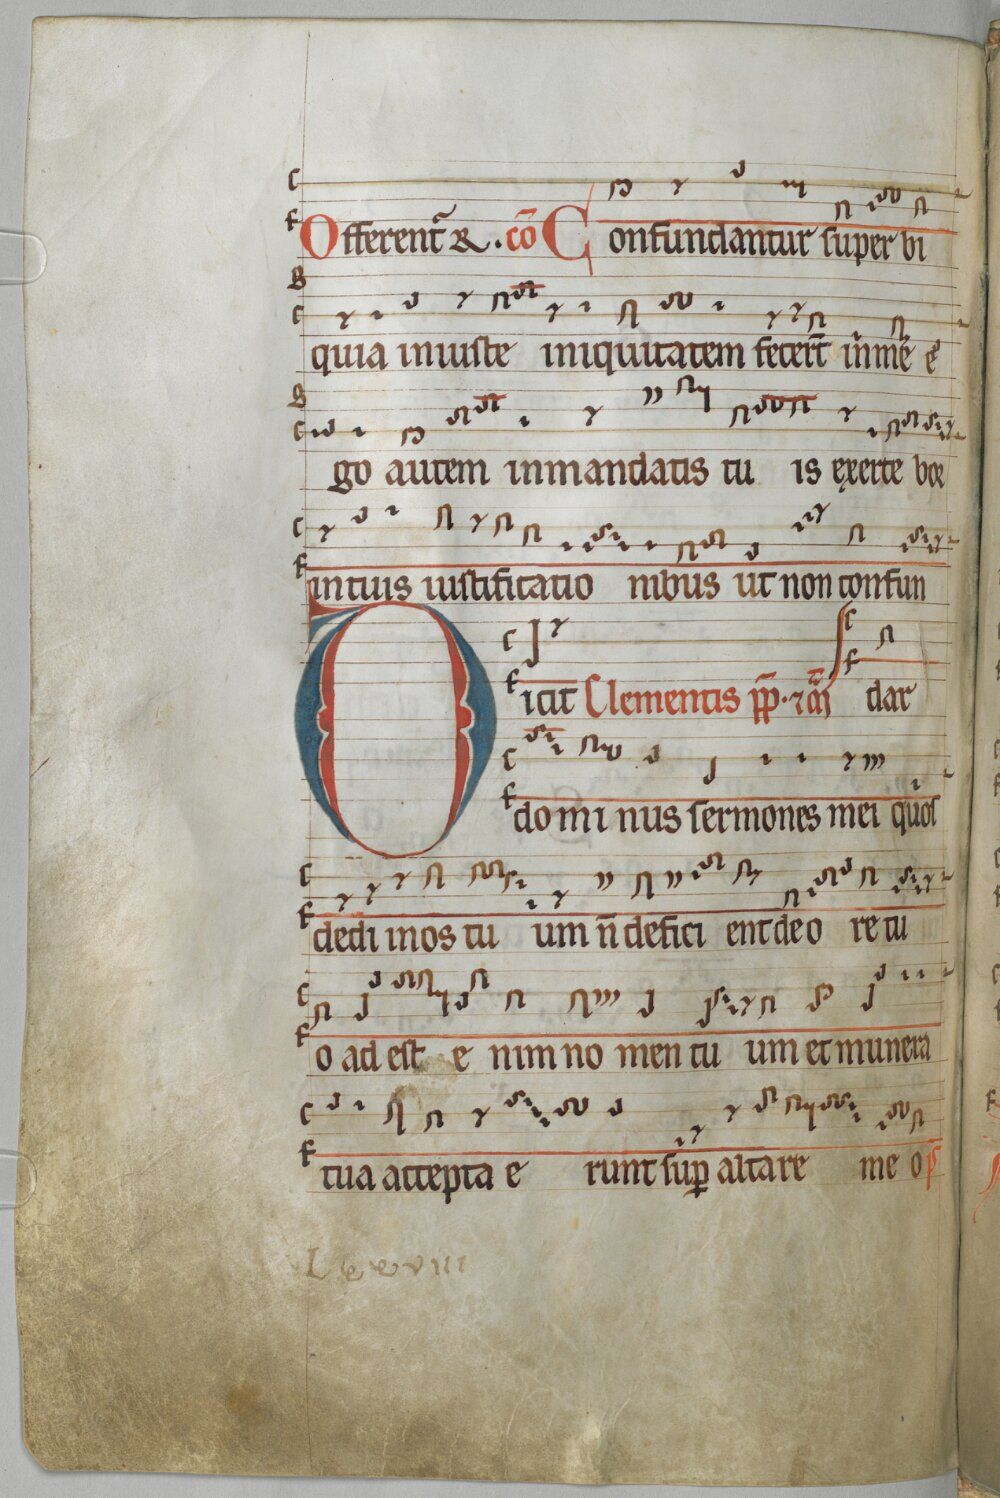 Offerent᷑ R. cō Confundantur super bi
quia iniuste iniquitatem fecer̄t inme ē
go autem inmandatis tu is exerce bor
intuis iustificatio nibus ut non confun
Dicit Clementis pp̄. dar
dominus sermones mei quos
dedi inos tu um n̄ defici ent de o re tu
o ad est e nim no men tu um et munera
tua accepta e runt sup altare me o
Lxxviii